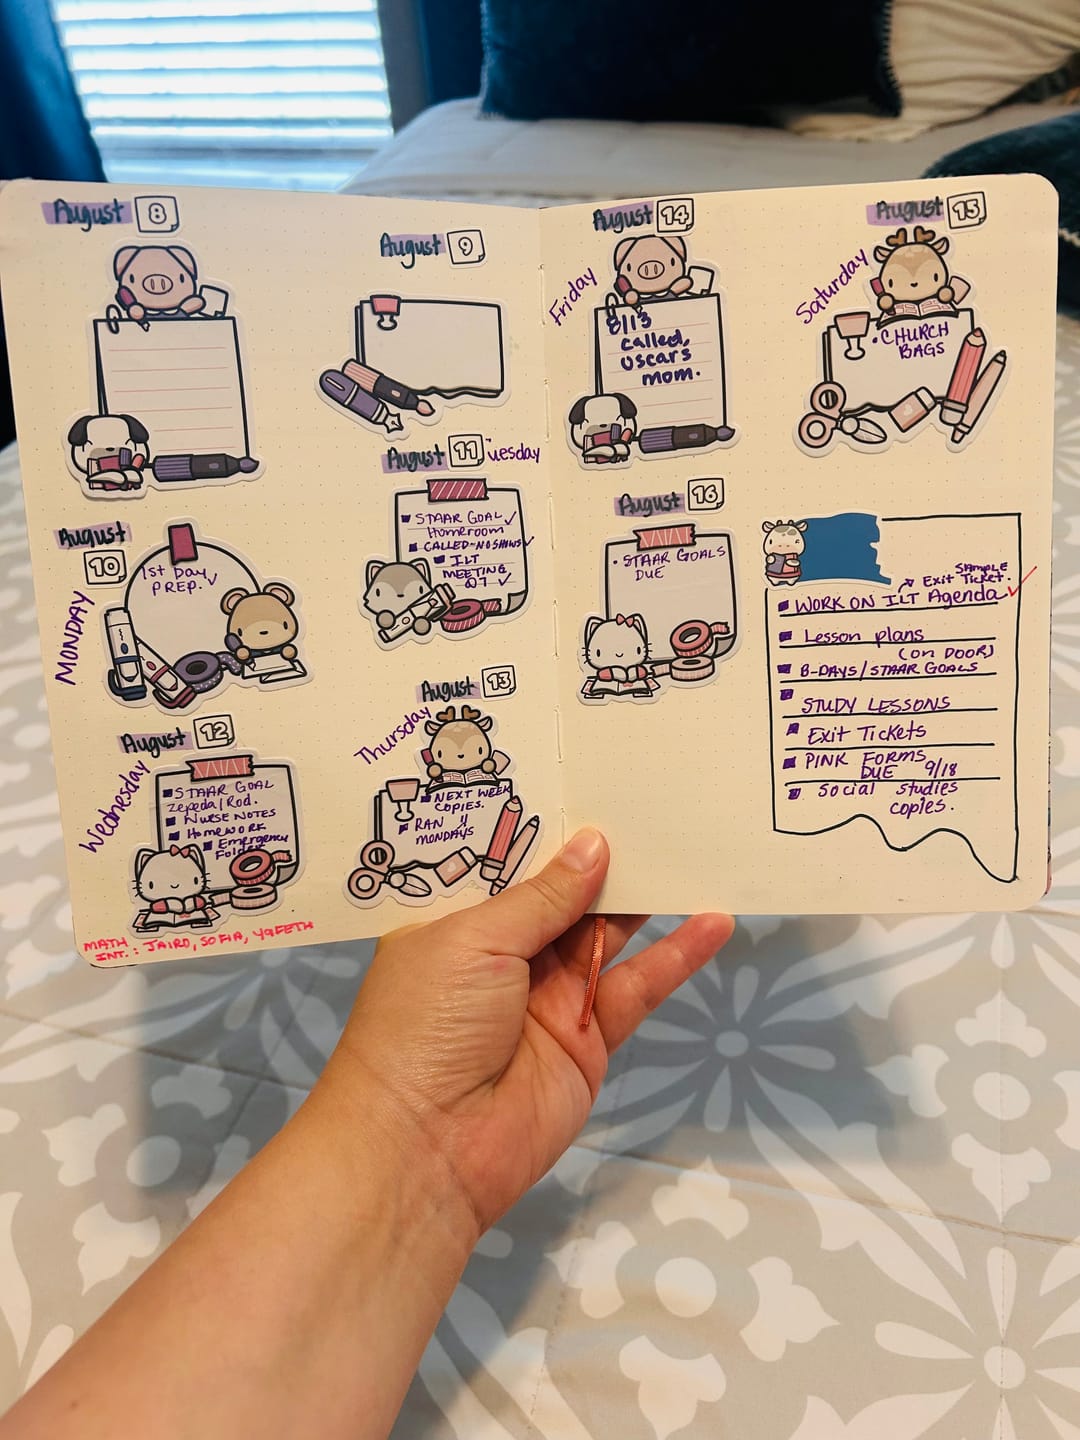 August 8
August 9
August 10
MONDAY
1st Day
PREP. ✓
August 11 Tuesday
STAAR GOAL ✓
Homeroom
CALLED-NO SHOWS ✓
ILT
MEETING
Q7 ✓
August 12
Wednesday
STAAR GOAL
Zepeda/Rod.
NURSE NOTES
HOMEWORK
Emergency
Folder
August 13
Thursday
NEXT WEEK
COPIES.
RAN 11
MONDAYS
MATH
INT.: JAIRO, SOFIA, YAFETH
August 14
Friday
8/13
called,
Oscars
mom.
August 15
Saturday
• CHURCH
BAGS
August 16
• STAAR GOALS
DUE
SAMPLE
Exit Ticket.
WORK ON ILT Agenda ✓
Lesson plans
(on DOOR)
B-DAYS/STAAR GOALS
STUDY LESSONS
Exit Tickets
PINK FORMS
DUE 9/18
Social Studies
copies.